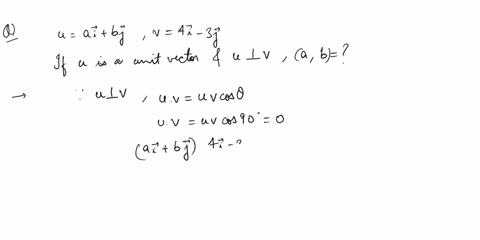 Q) u = ai⃗ + bj⃗ , v = 4i⃗ − 3j⃗
If u is a unit vector & u ⊥ v , (a, b) = ?
→ ∵ u ⊥ v , u.v = uv cosθ
u.v = uv cos 90° = 0
(ai⃗ + bj⃗) 4i⃗ −